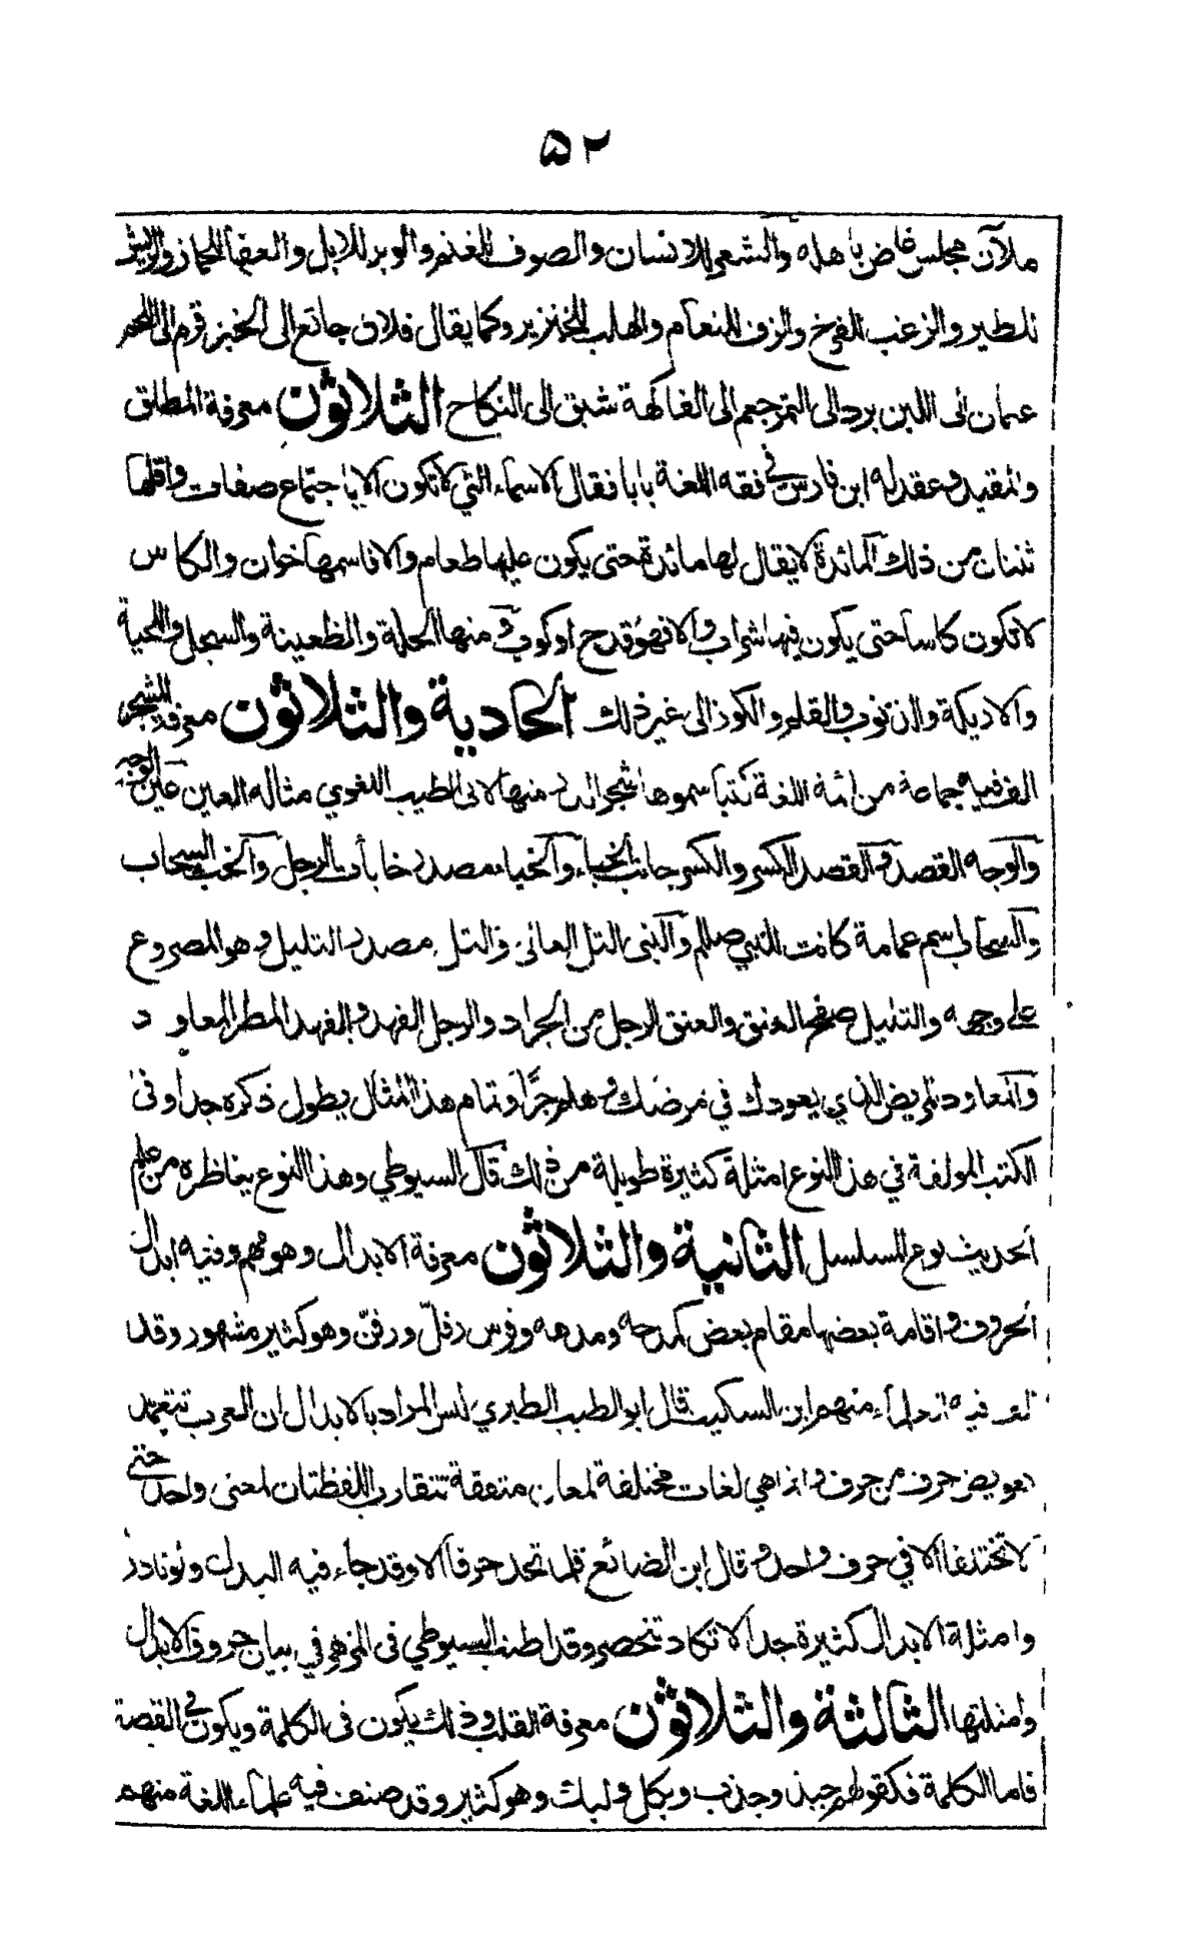 ۵۲
ملآن مجلس غاض باهله والشعر للانسان والصوف للغنم والوبر للابل والعفا للحمار والريش
للطير والزغب للفرخ والزف للنعام والهلب للخنزير وكما يقال فلان جائع الى الخبز قرم الى اللحم
عمان الى اللبن برد الى التمر جعم الى الفاكهة شبق الى النكاح الثلاثون معرفة المطلق
والمقيد وعقد له ابن فارس في فقه اللغة بابا فقال الاسماء التي لا تكون الا باجتماع صفات واقلها
ثنتان من ذلك المائدة لا يقال لها مائدة حتى يكون عليها طعام والا فاسمها خوان والكاس
لا تكون كاسا حتى يكون فيها شراب والا فهو قدح او كوب و منها الحلة والظعينة والسجل واللحية
والاريكة والذنوب والقلم والكوز الى غير ذلك الحادية والثلاثون معرفة المشجر
الف فيه جماعة من ائمة اللغة كتبا سموها شجر الدر منها لابى الطيب اللغوي مثاله العين عين الوجه
والوجه القصد والقصد الكسر والكسر جانب الخباء والخباء مصدر خابأت الرجل والخب السحاب
والسحاب اسم عمامة كانت للنبي صللم والنبى التل العالى والتل مصدر التليل وهو المصروع
على وجهه والتليل صفح العنق والعنق الرجل من الجراد والرجل الفهد والفهد المطر المعاود
والمعاود المريض الذي يعودك في مرضك وهلم جرا وتمام هذا المثال يطول ذكره جدا وفى
الكتب المولفة في هذا النوع امثلة كثيرة طويلة من ذلك قال السيوطي وهذا النوع يناظره من علم
الحديث نوع المسلسل الثانية والثلاثون معرفة الابدال وهو مهم وفيه ابدال
الحروف واقامة بعضها مقام بعض كمدحه ومدهه وفرس رفلّ ورفنّ وهو كثير مشهور وقد
الف فيه العلماء منهم ابن السكيت قال ابو الطيب الطبري ليس المراد بالابدال ان العرب تتعمد
تعويض حرف من حرف وانما هي لغات مختلفة لمعان متفقة تتقارب اللفظتان لمعنى واحد حتى
لا تختلفا الا في حرف واحد و قال ابن الضائع قلما تجد حرفا الا وقد جاء فيه البدل ولو نادر
وامثلة الابدال كثيرة جدا لا تكاد تنحصر وقد اطنب السيوطي فى المزهر في بيان حروف الابدال
وامثلتها الثالثة والثلاثون معرفة القلب وذلك يكون فى الكلمة ويكون في القصة
فاما الكلمة فكقولهم جبذ وجذب وبكل ولبك وهو كثير وقد صنف فيه علماء اللغة منهم